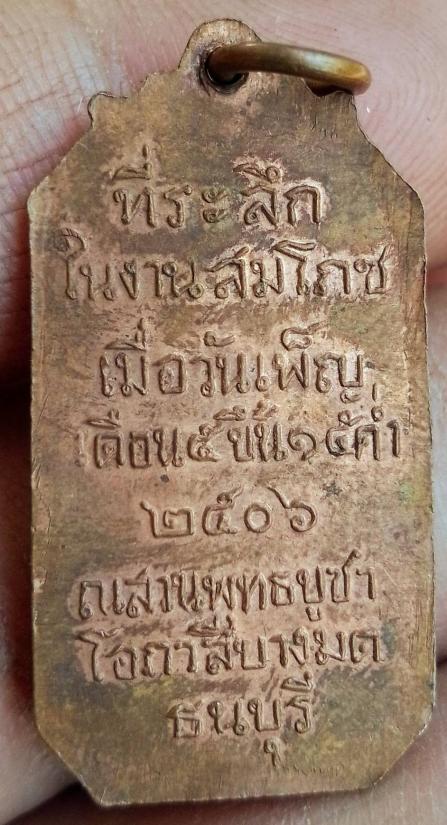 ที่ระลึก
ในงานสมโภช
เมื่อวันเพ็ญ
เดือน๕ ขึ้น๑๕ค่ำ
๒๕๐๖
ณสวนพุทธบูชา
โอภาสีบางมด
ธนบุรี